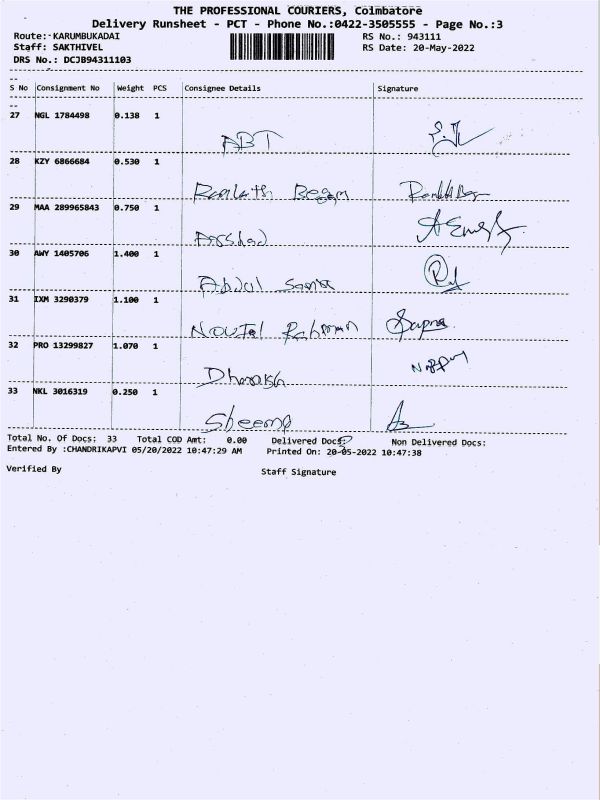 THE PROFESSIONAL COURIERS, Coimbatore
Delivery Runsheet - PCT - Phone No.:0422-3505555 - Page No.:3
Route: KARUMBUKADAI RS No.: 943111
Staff: SAKTHIVEL RS Date: 20-May-2022
DRS No.: DCJB94311103
S No Consignment No Weight PCS Consignee Details Signature
27 NGL 1784498 0.138 1
ABT
28 KZY 6866684 0.530 1
Begam
29 MAA 289965843 0.750 1
Arshad
30 AWY 1405706 1.400 1
Abdul
31 IXM 3290379 1.100 1
Nowfal Rahman Sapna
32 PRO 13299827 1.070 1
33 NKL 3016319 0.250 1
Sheema
Total No. Of Docs: 33 Total COD Amt: 0.00 Delivered Docs: Non Delivered Docs:
Entered By :CHANDRIKAPVI 05/20/2022 10:47:29 AM Printed On: 20-05-2022 10:47:38
Verified By Staff Signature